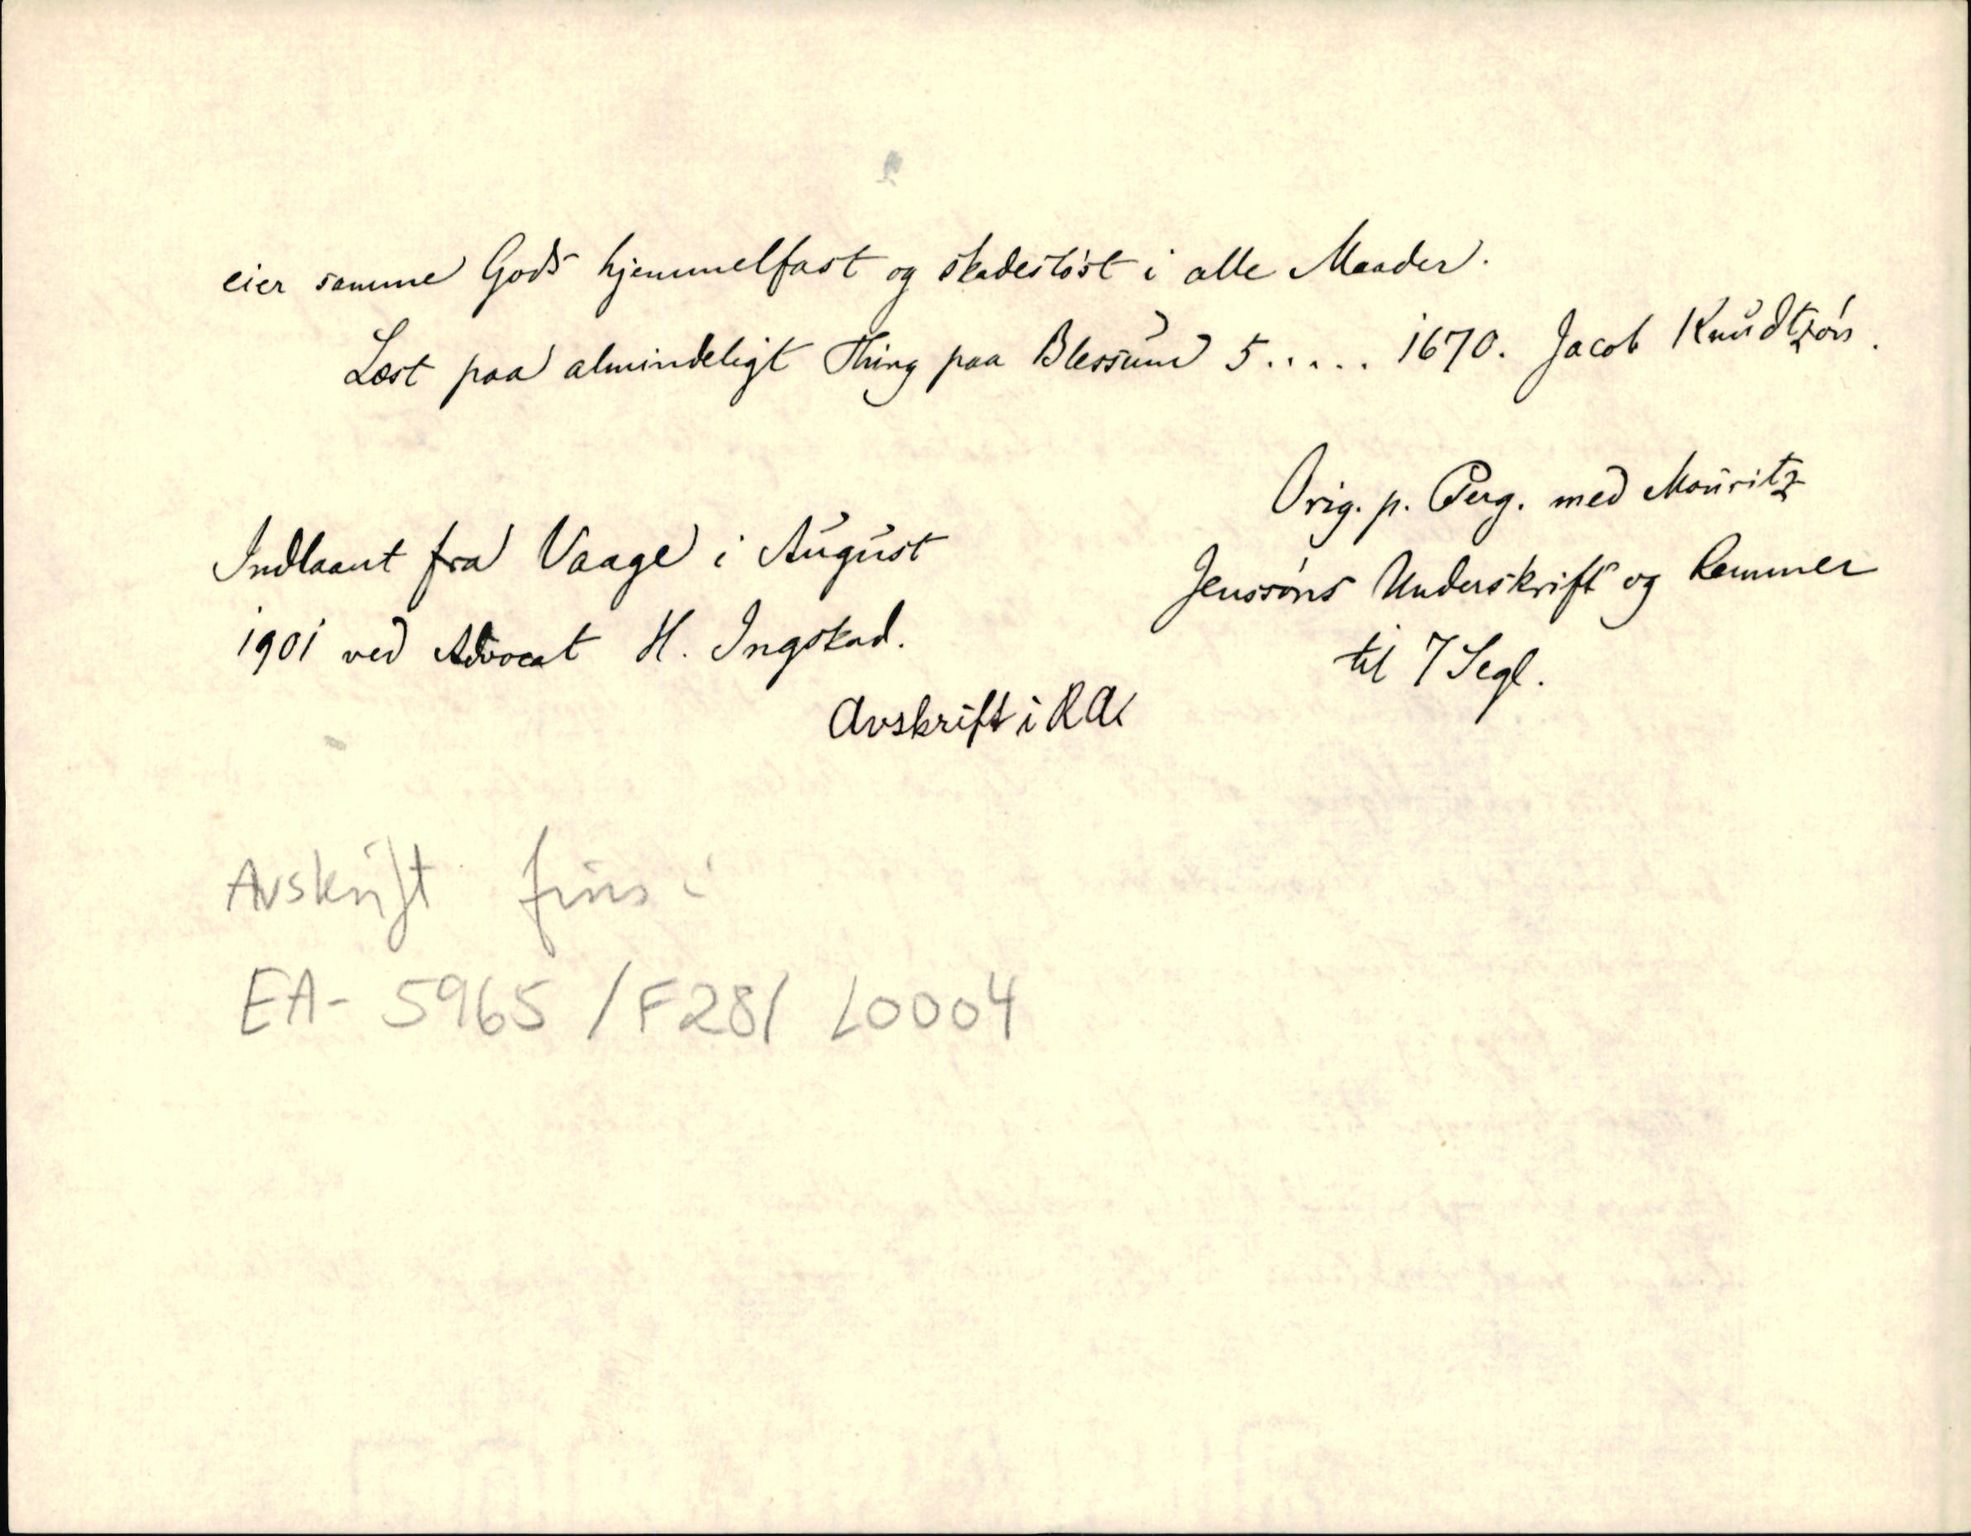 eier samme Gods hjemmelfast og skadesløst i alle Maader.
Læst paa almindeligt Thing paa Blessum 5..... 1670. Jacob Knudtzøn.
Orig. p. Perg. med Mouritz
Jenssøns Underskrift og Remmer
til 7 Segl.
Indlaant fra Vaage i August
1901 ved Advocat H. Ingstad.
Avskrift i RA
Avskrift fins i
EA-5965/F28/L0004